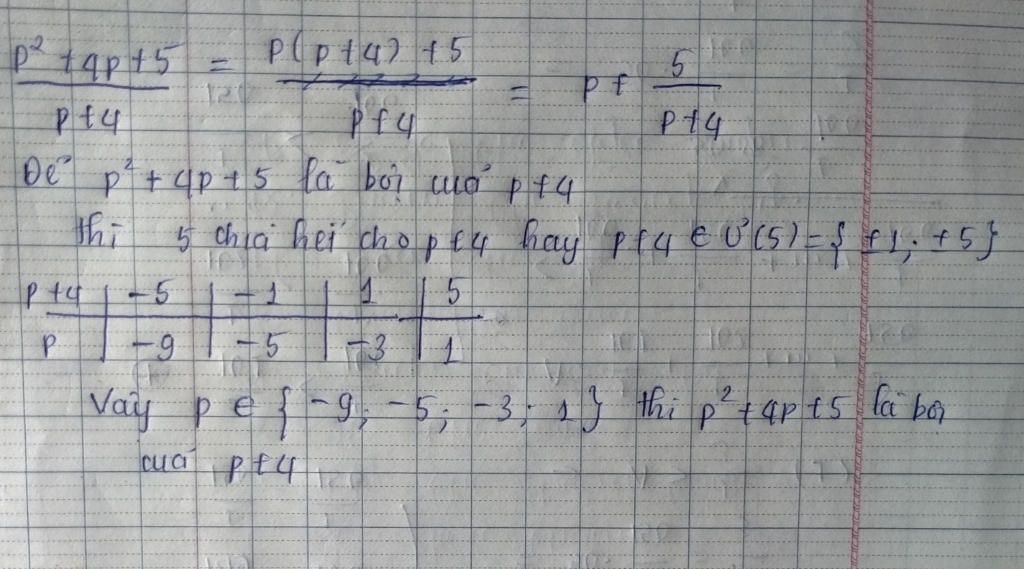 p² + 4p + 5 / p + 4 = p(p + 4) + 5 / p + 4 = p + 5 / p + 4
Để p² + 4p + 5 là bội của p + 4
thì 5 chia hết cho p + 4 hay p + 4 ∈ Ư(5) = { ±1; ±5 }
p + 4 | -5 | -1 | 1 | 5
p | -9 | -5 | -3 | 1
Vậy p ∈ { -9; -5; -3; 1 } thì p² + 4p + 5 là bội
của p + 4